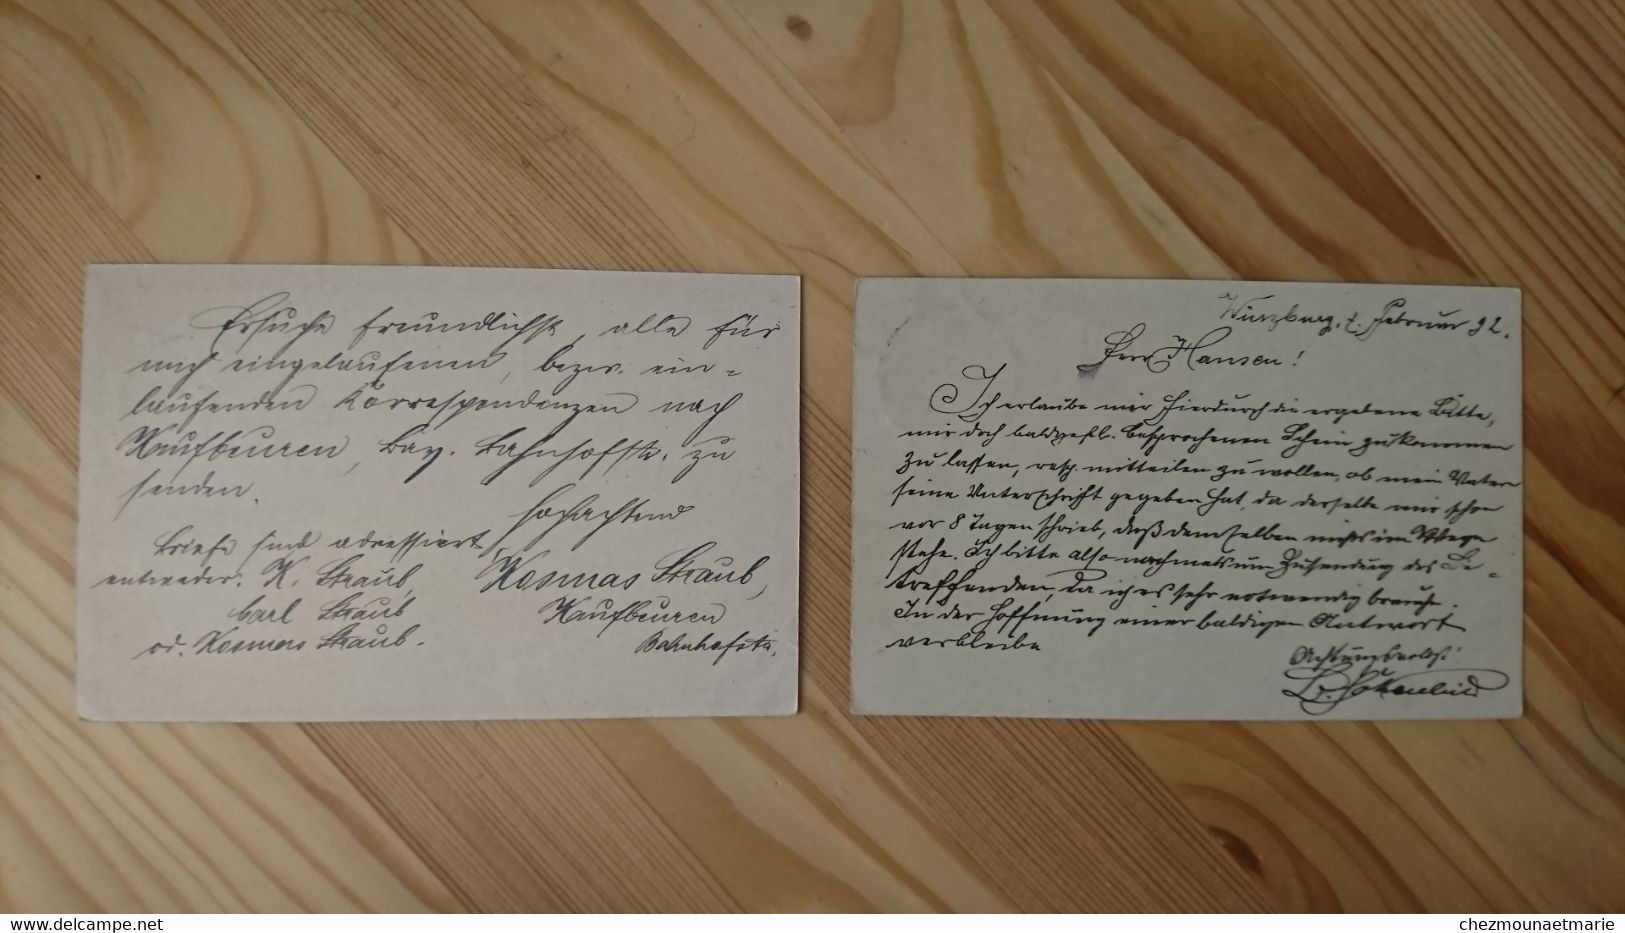 Ersuche freundlichst, alle für
mich eingelaufenen, bezw. ein-
laufenden Korrespondenzen nach
Kaufbeuren, bay. Bahnhofstr. zu
senden.
Hochachtend
Briefe sind adressiert,
entweder: K. Straub,
Carl Straub
od. Kosmas Straub.
Kosmas Straub,
Kaufbeuren
Bahnhofstr.
Würzburg, 1. Februar 92.
Herr Hansen!
Ich erlaube mir hierdurch die ergebene Bitte,
mir doch baldgefl. besprochenen Schein zukommen
zu lassen, resp. mitteilen zu wollen, ob mein Vater
seine Unterschrift gegeben hat, da derselbe mir schon
vor 8 Tagen schrieb, daß demselben nichts im Wege
stehe. Ich bitte also nochmals um Zusendung des Be-
treffenden, da ich es sehr notwendig brauche.
In der Hoffnung einer baldigen Antwort
verbleibe
Achtungsvollst!
Delcampe.net
chezmounaetmarie